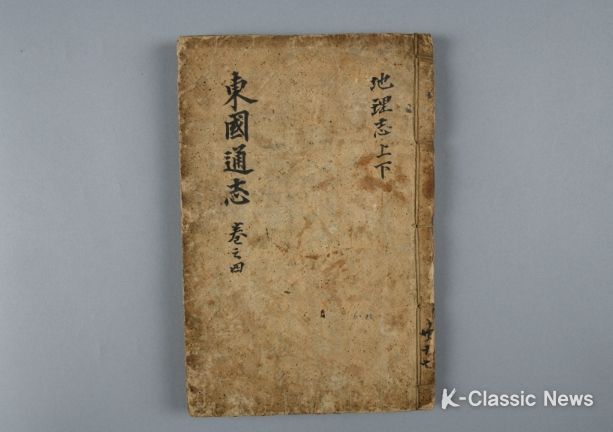 地理志上下
東國通志
卷之四
K-Classic News